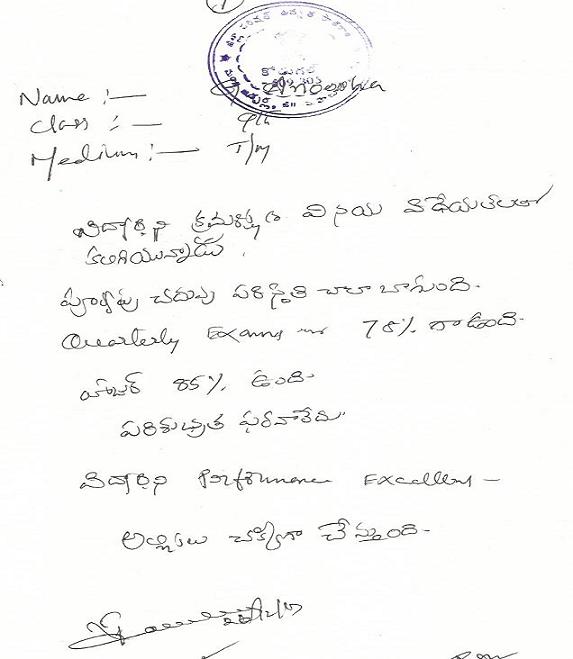 1
కోడుగల్
Name :—
Class : — 9th
Medium :— T/M
విద్యార్థిని క్రమశిక్షణ వినయ విధేయతలతో
కలిగియున్నాడు.
పూర్వపు చదువు పరిస్థితి చాలా బాగుంది.
Quarterly Exams 78% గా ఉంది.
హాజర్ 85% ఉంది.
పరిశుభ్రత ఫరవాలేదు.
విద్యార్థిని Performance Excellent —
అల్లికలు చక్కగా చేస్తుంది.